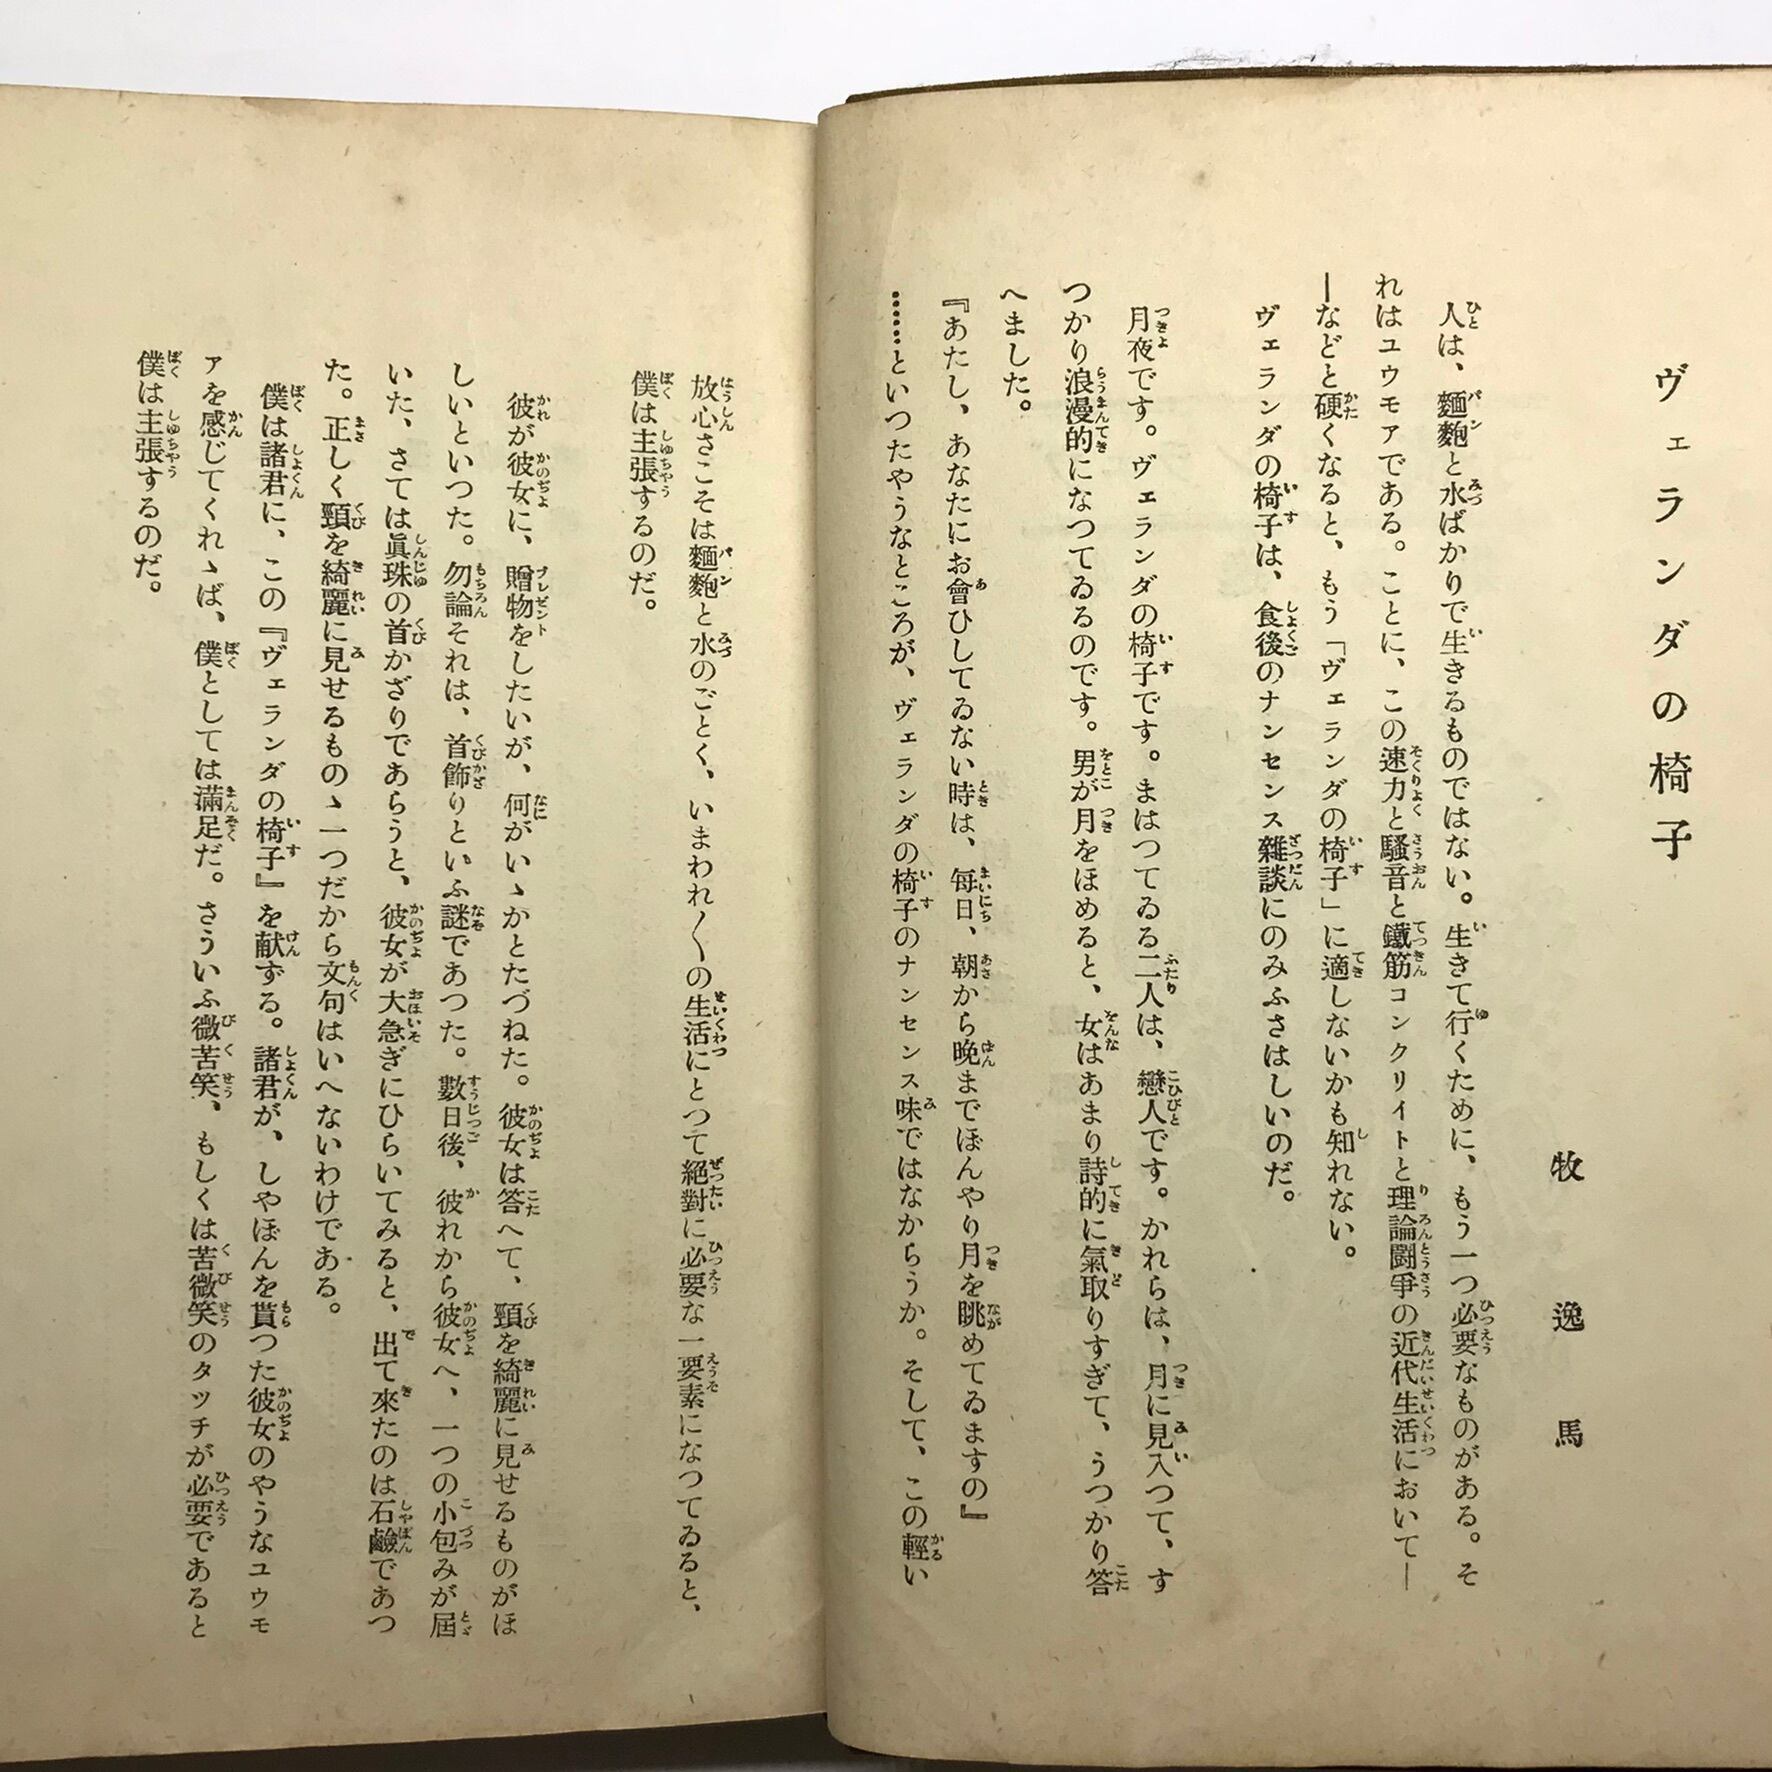 ヴェランダの椅子
牧逸馬
人は、麵麭と水ばかりで生きるものではない。生きて行くために、もう一つ必要なものがある。そ
れはユウモアである。ことに、この速力と騷音と鐵筋コンクリイトと理論鬪爭の近代生活において—
—などと硬くなると、もう「ヴェランダの椅子」に適しないかも知れない。
ヴェランダの椅子は、食後のナンセンス雜談にのみふさはしいのだ。
月夜です。ヴェランダの椅子です。まはつてゐる二人は、戀人です。かれらは、月に見入つて、す
つかり浪漫的になつてゐるのです。男が月をほめると、女はあまり詩的に氣取りすぎて、うつかり答
へました。
『あたし、あなたにお會ひしてゐない時は、每日、朝から晩までぼんやり月を眺めてゐますの』
……といつたやうなところが、ヴェランダの椅子のナンセンス味ではなからうか。そして、この輕い
放心さこそは麵麭と水のごとく、いまわれ〱の生活にとつて絕對に必要な一要素になつてゐると、
僕は主張するのだ。
彼が彼女に、贈物をしたいが、何がいゝかとたづねた。彼女は答へて、頸を綺麗に見せるものがほ
しいといつた。勿論それは、首飾りといふ謎であつた。數日後、彼れから彼女へ、一つの小包みが屆
いた、さては眞珠の首かざりであらうと、彼女が大急ぎにひらいてみると、出て來たのは石鹼であつ
た。正しく頸を綺麗に見せるものゝ一つだから文句はいへないわけである。
僕は諸君に、この『ヴェランダの椅子』を献ずる。諸君が、しやぼんを貰つた彼女のやうなユウモ
アを感じてくれゝば、僕としては滿足だ。さういふ微苦笑、もしくは苦微笑のタッチが必要であると
僕は主張するのだ。